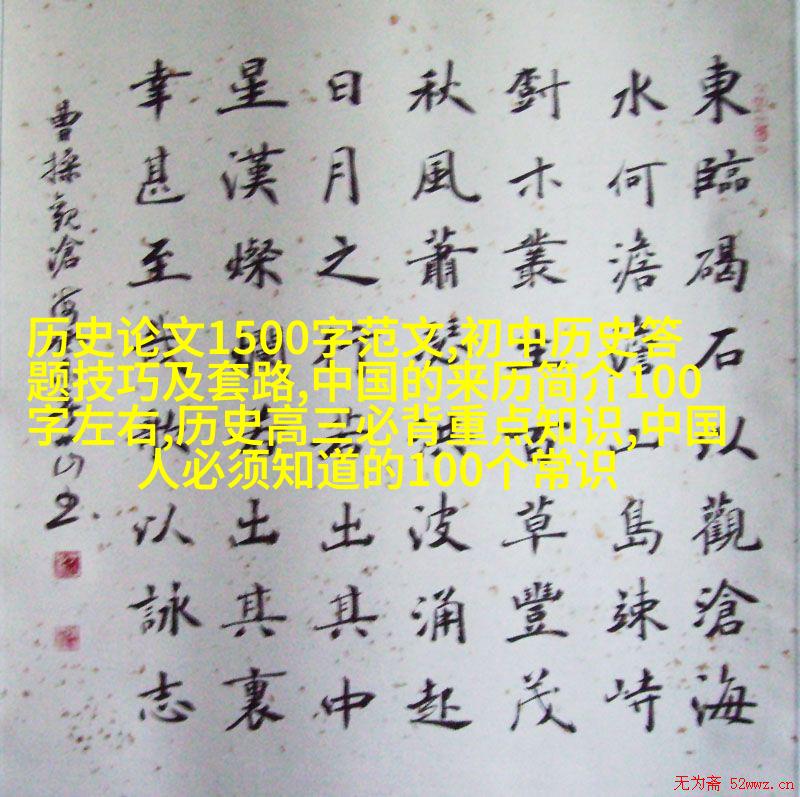 東臨碣石以觀滄海
水何澹澹山島竦峙
木叢生百草豐茂
秋風蕭瑟洪波涌起
日月之行若出其中
星漢燦爛若出其裏
幸甚至哉歌以詠志
曹操觀滄海
历史论文1500字范文,初中历史答
题技巧及套路,中国的来历简介100
字左右,历史高三必背重点知识,中国
人必须知道的100个常识
无为斋 52wwz.cn